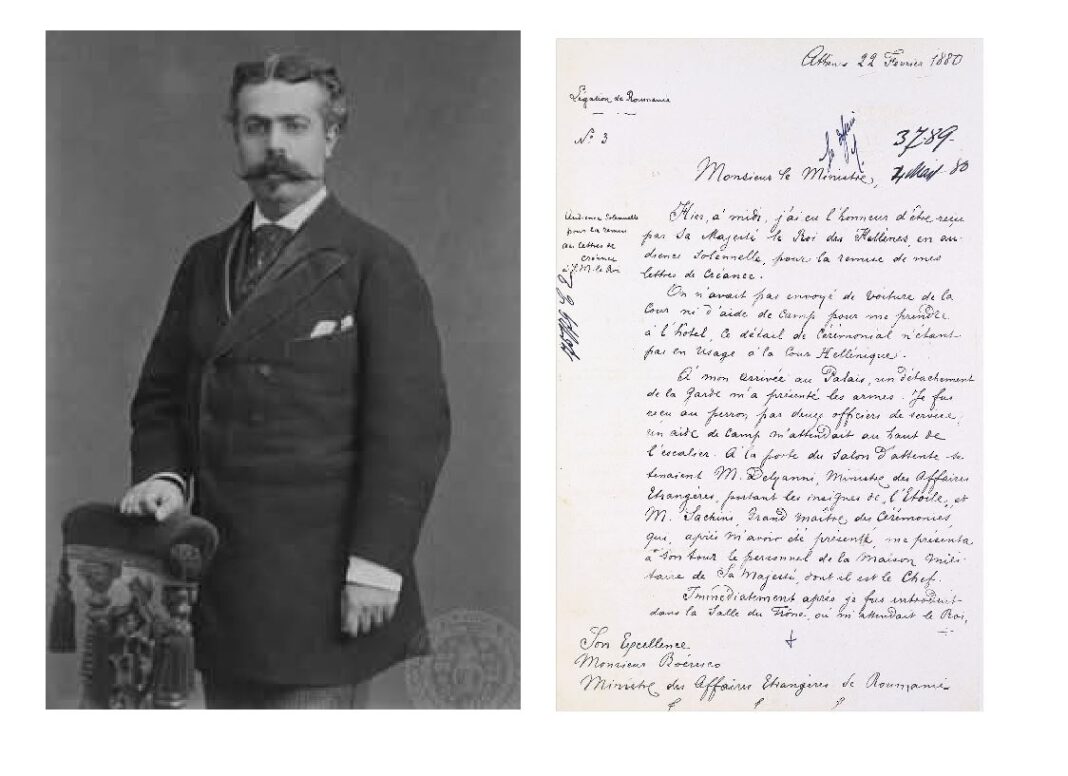 Athènes 22 Février 1880
Légation de Roumanie
Nº 3
3789
Mai 80
Monsieur le Ministre,
Audience Solennelle
pour la remise
des lettres de
créance
à S. M. le Roi
Hier, à midi, j'ai eu l'honneur d'être reçu
par Sa Majesté le Roi des Hellènes, en au-
dience solennelle, pour la remise de mes
lettres de Créance.
On n'avait pas envoyé de voiture de la
Cour ni d'aide de camp pour me prendre
à l'hôtel, ce détail de Cérémonial n'étant
pas en usage à la Cour Hellénique.
À mon arrivée au Palais, un détachement
de la Garde m'a présenté les armes. Je fus
reçu au perron par deux officiers de service;
un aide de camp m'attendait au haut de
l'escalier. À la porte du salon d'attente se
tenaient M. Delyanni, Ministre des Affaires
Etrangères, portant les insignes de "l'Etoile", et
M. Sachini, Grand Maître des Cérémonies,
qui, après m'avoir été présenté, me présenta
à son tour le personnel de la maison mili-
taire de Sa Majesté, dont il est le Chef.
Immédiatement après je fus introduit
dans la Salle du Trône, où m'attendait le Roi,
Son Excellence
Monsieur Boéresco
Ministre des Affaires Etrangères de Roumanie